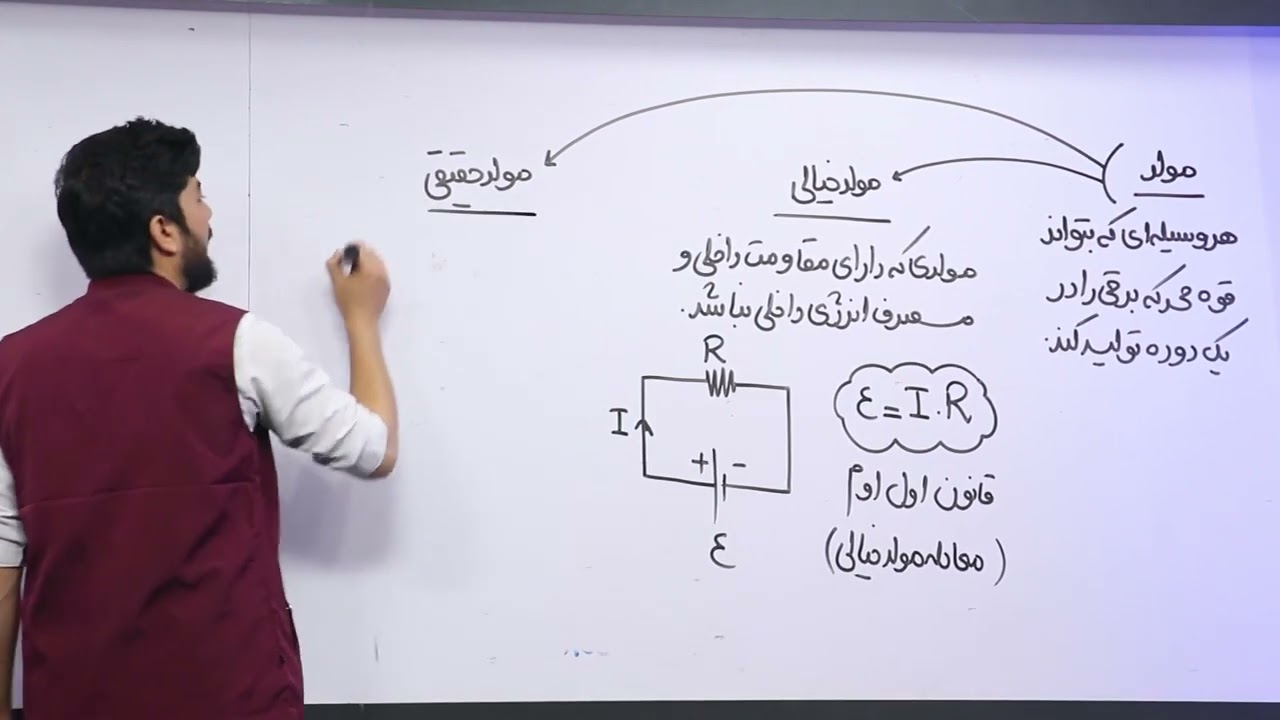 مولد
هر وسیله‌ای که بتواند
قوه محرکه برقی را در
یک دوره تولید کند.
مولد خیالی
مولدی که دارای مقاومت داخلی و
مصرف انرژی داخلی نباشد.
R
I
+ -
ε
ε = I.R
قانون اول اوم
(معادله مولد خیالی)
مولد حقیقی